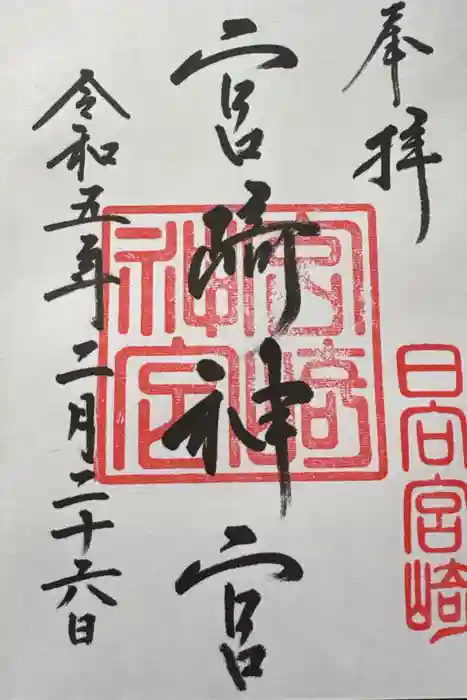 奉拝
日向宮崎
宮崎神宮
宮崎神宮
令和五年二月二十六日